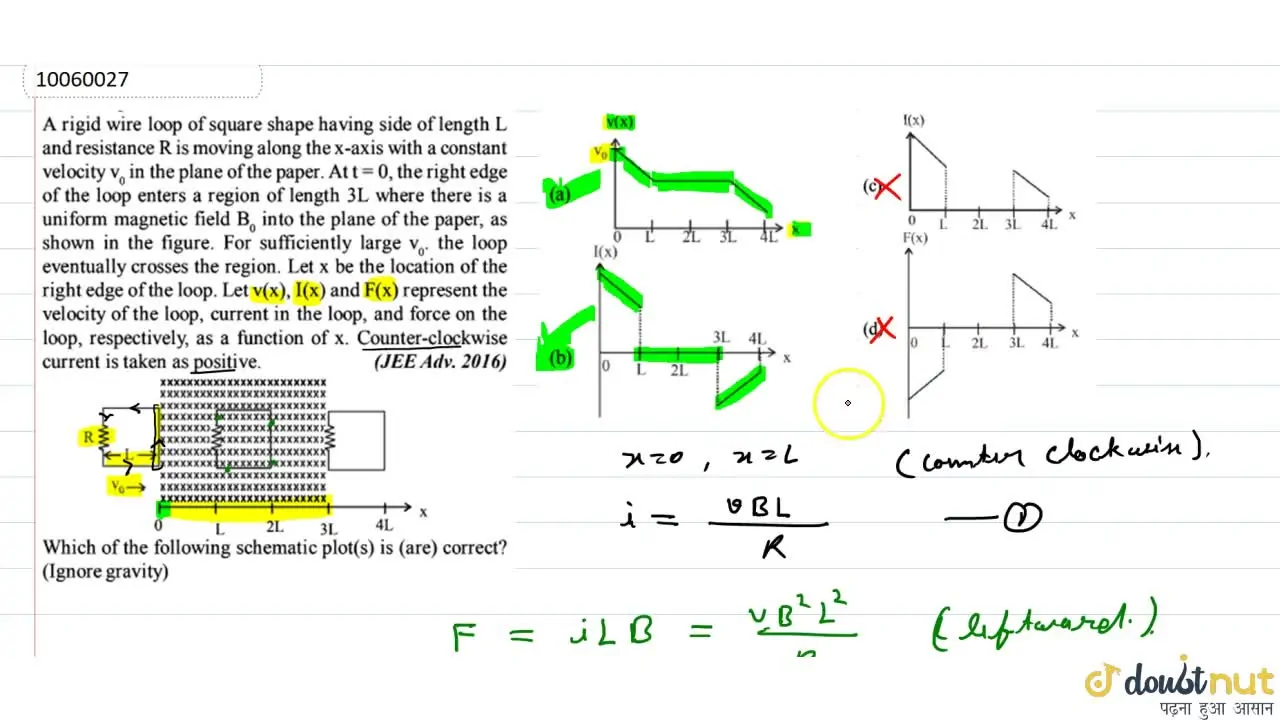 10060027
A rigid wire loop of square shape having side of length L
and resistance R is moving along the x-axis with a constant
velocity v₀ in the plane of the paper. At t = 0, the right edge
of the loop enters a region of length 3L where there is a
uniform magnetic field B₀ into the plane of the paper, as
shown in the figure. For sufficiently large v₀. the loop
eventually crosses the region. Let x be the location of the
right edge of the loop. Let v(x), I(x) and F(x) represent the
velocity of the loop, current in the loop, and force on the
loop, respectively, as a function of x. Counter-clockwise
current is taken as positive. (JEE Adv. 2016)
R
L
V₀
0 L 2L 3L 4L x
Which of the following schematic plot(s) is (are) correct?
(Ignore gravity)
v(x)
V₀
(a)
0 L 2L 3L 4L x
I(x)
(b)
3L 4L
0 L 2L x
I(x)
(c)
0 L 2L 3L 4L x
F(x)
(d)
0 L 2L 3L 4L x
x=0, x=L (counter clockwise).
i = vBL / R — 1
F = iLB = vB²L² (leftward.)
doubtnut
पढ़ना हुआ आसान